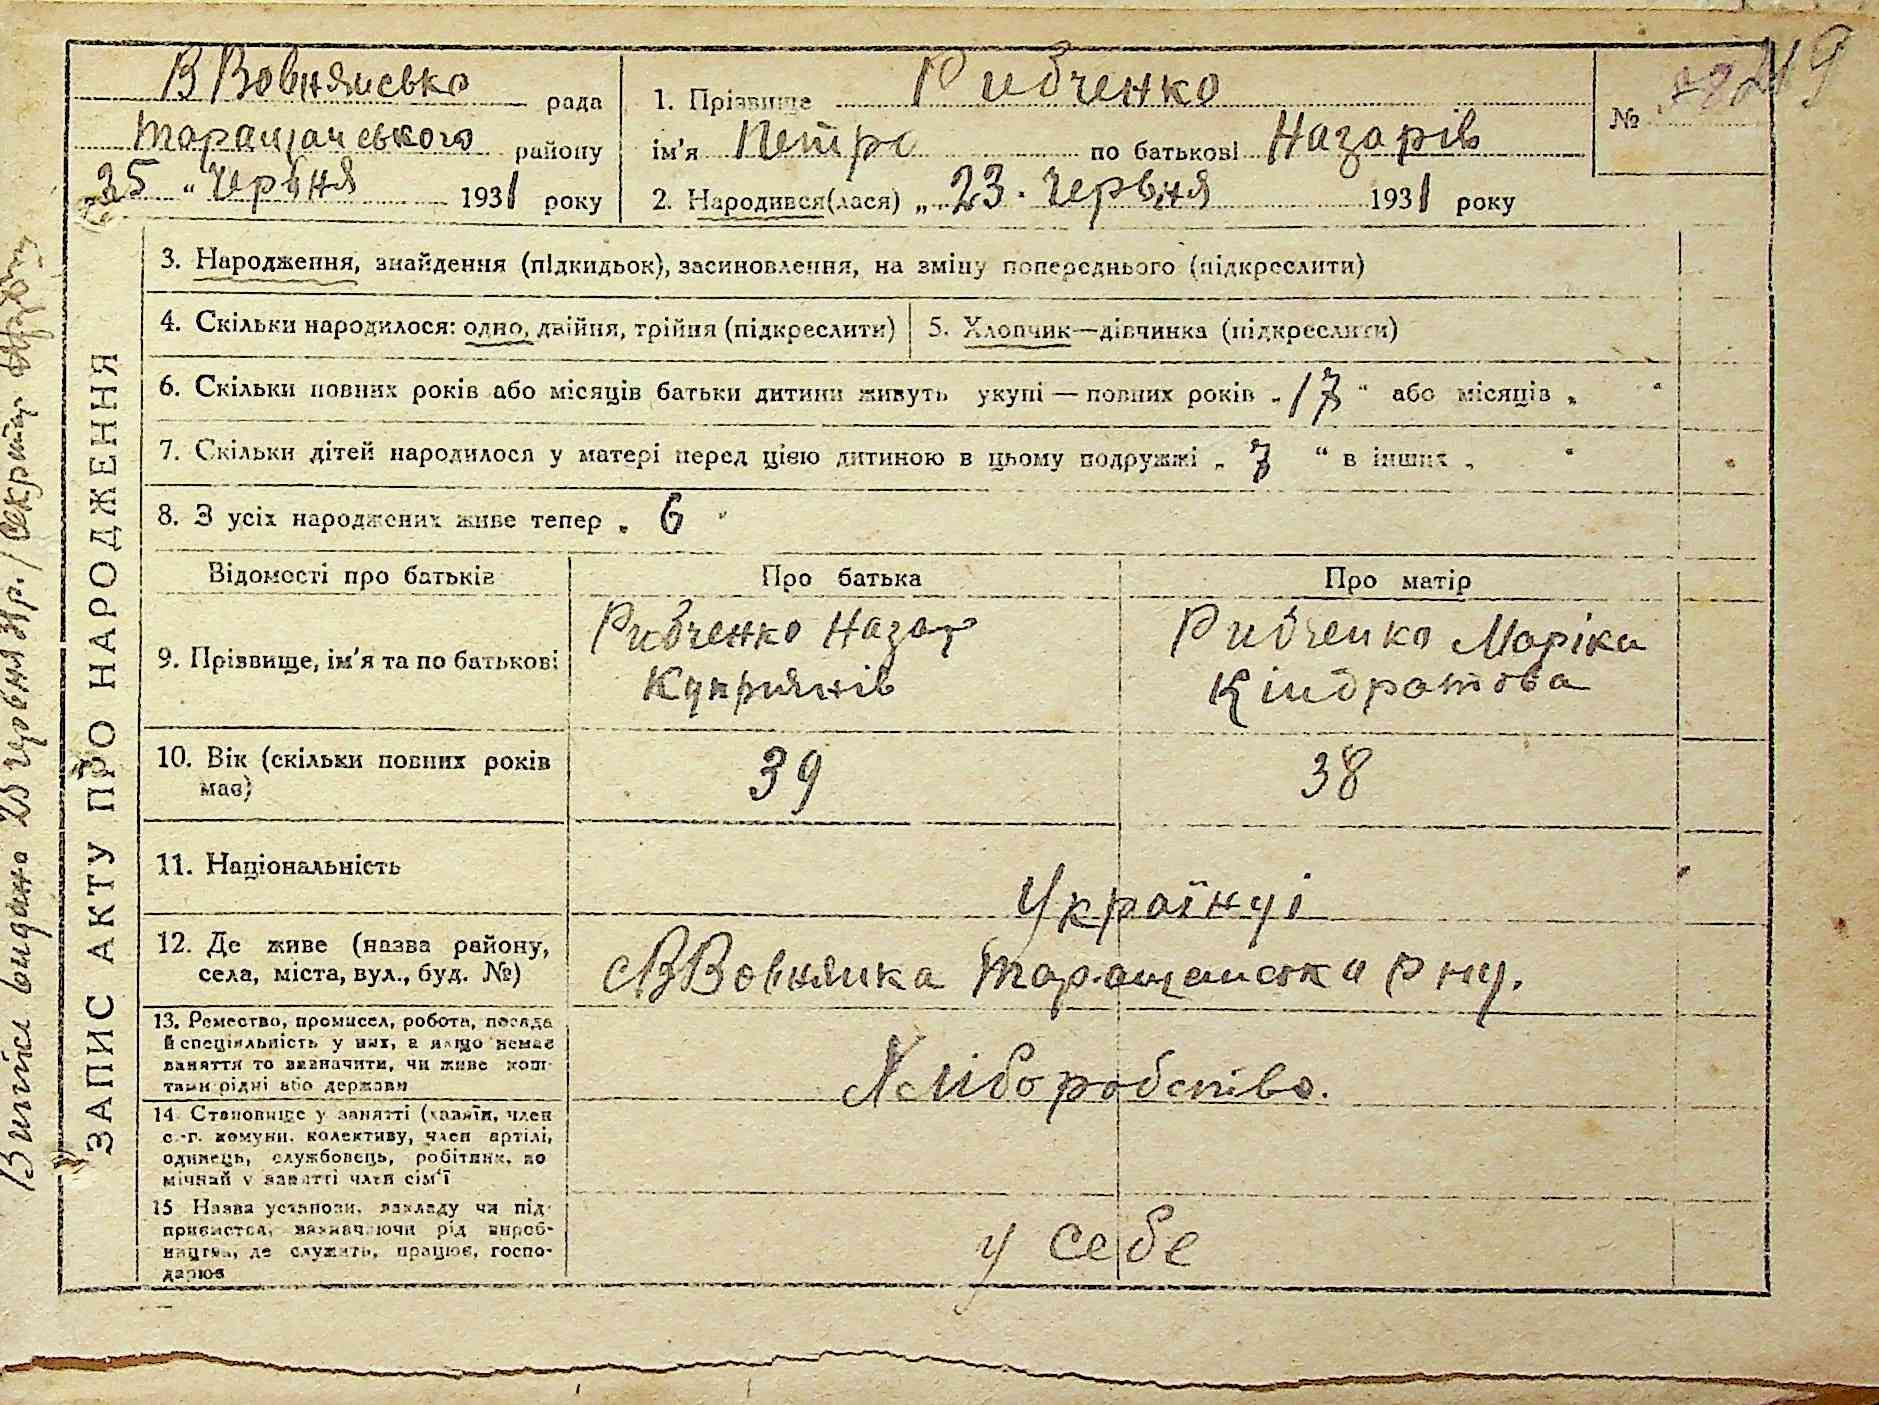 В Вовнянсько рада
Таращачського району
25 „ Червня 1931 року
1. Прізвище Рибченко
ім'я Петро по батькові Назарів
2. Народився(лася) „ 23 · Червня 1931 року
№ 219
ЗАПИС АКТУ ПРО НАРОДЖЕННЯ
3. Народження, знайдення (підкидьок), засиновлення, на зміну попереднього (підкреслити)
4. Скільки народилося: одно, двійня, трійня (підкреслити)
5. Хлопчик—дівчинка (підкреслити)
6. Скільки повних років або місяців батьки дитини живуть укупі — повних років „ 17 “ або місяців „ “
7. Скільки дітей народилося у матері перед цією дитиною в цьому подружжі „ 7 “ в інших „ “
8. З усіх народжених живе тепер „ 6 “
Відомості про батьків Про батька Про матір
9. Прізвище, ім'я та по батькові
Рибченко Назар
Куприянів
Рибченко Маріка
Кіндратова
10. Вік (скільки повних років
має)
39
38
11. Національність
Українці
12. Де живе (назва району,
села, міста, вул., буд. №)
с ВВовнянка Таращанська Рну.
13. Ремество, промисел, робота, посада
й спеціяльність у них, а якщо немає
заняття то визначити, чи живе кош-
тами рідні або держави
Хліборобство.
14. Становище у занятті (хазяїн, член
с.-г. комуни, колективу, член артілі,
одинець, службовець, робітник, по
мічний у занятті член сім'ї
15 Назва установи, закладу чи під-
приємства, зазначаючи рід вироб-
ництва, де служить, працює, госпо-
дарює
у себе
Випис видано 25 червня 31р. / Секретар